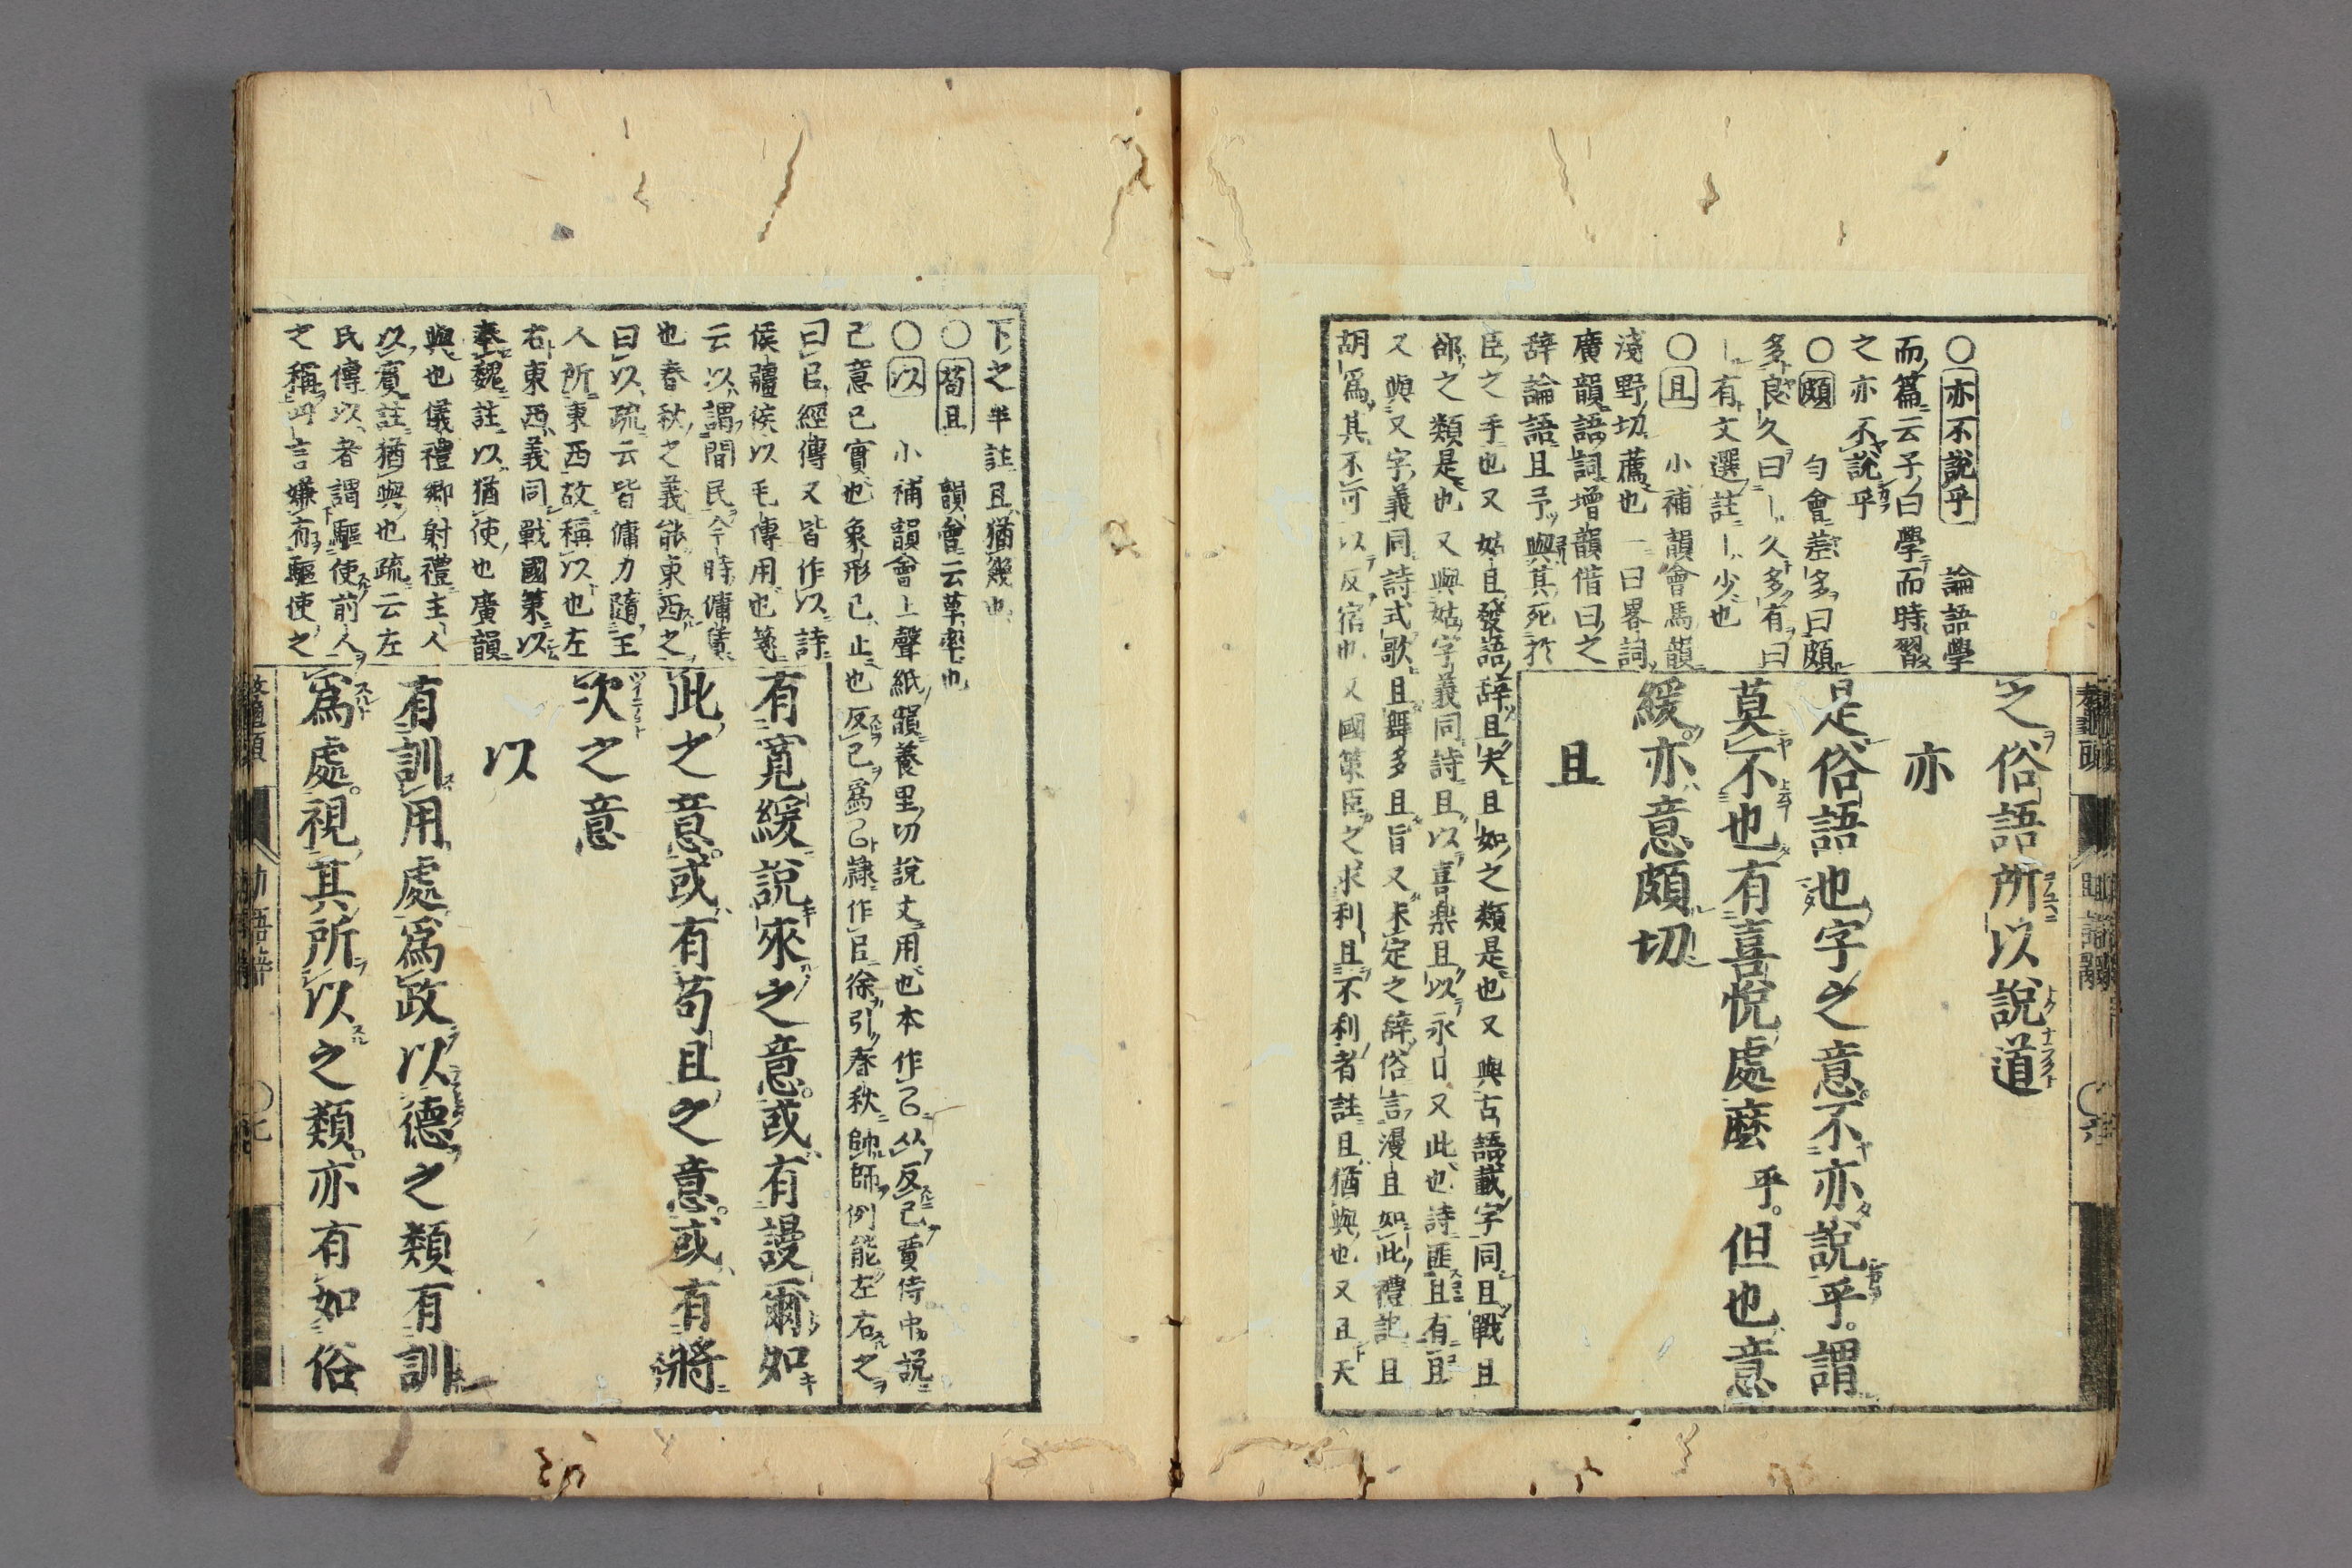 ○亦不說乎　論語學
而篇云子曰學而時習
之亦不說乎
○頗　勻會差多曰頗
多良久曰｜久多有曰
｜有文選註｜少也
○且　小補韻會馬韻
淺野切薦也一曰畧詞
廣韻語詞增韻借曰之
辭論語且予與其死於
臣之手也又姑且發語辭且夫且如之類是也又與古語載字同且戰且
郤之類是也又與姑字義同詩且以喜樂且以永日又此也詩匪且有且
又與又字義同詩式歌且舞多且旨又未定之辭俗言漫且如此禮記且
胡爲其不可以反宿也又國策臣之求利且不利者註且猶與也又且天
之俗語所以說道
亦
是俗語也字之意不亦說乎謂
莫不也有喜悅處麽乎但也意
緩亦意頗切
且
下之半註且猶幾也
○苟且　韻會云草率也
○以　小補韻會上聲紙韻養里切說文用也本作㠯从反已賈侍中說
已意已實也象形已止也反已爲㠯隸作㠯徐引春秋帥師例能左右之
曰㠯經傳又皆作以詩
侯彊侯以毛傳用也箋
云以謂間民今時傭賃
也春秋之義能東西之
曰以疏云皆傭力隨主
人所東西故稱以也左
右東西義同戰國策以
秦魏註以猶使也廣韻
與也儀禮鄉射禮主人
以賓註猶與也疏云左
氏傳以者謂驅使前人
之稱此言嫌有驅使之
有寬緩說來之意或有謾爾如
此之意或有苟且之意或有將
次之意
以
有訓用處爲政以德之類有訓
爲處視其所以之類亦有如俗